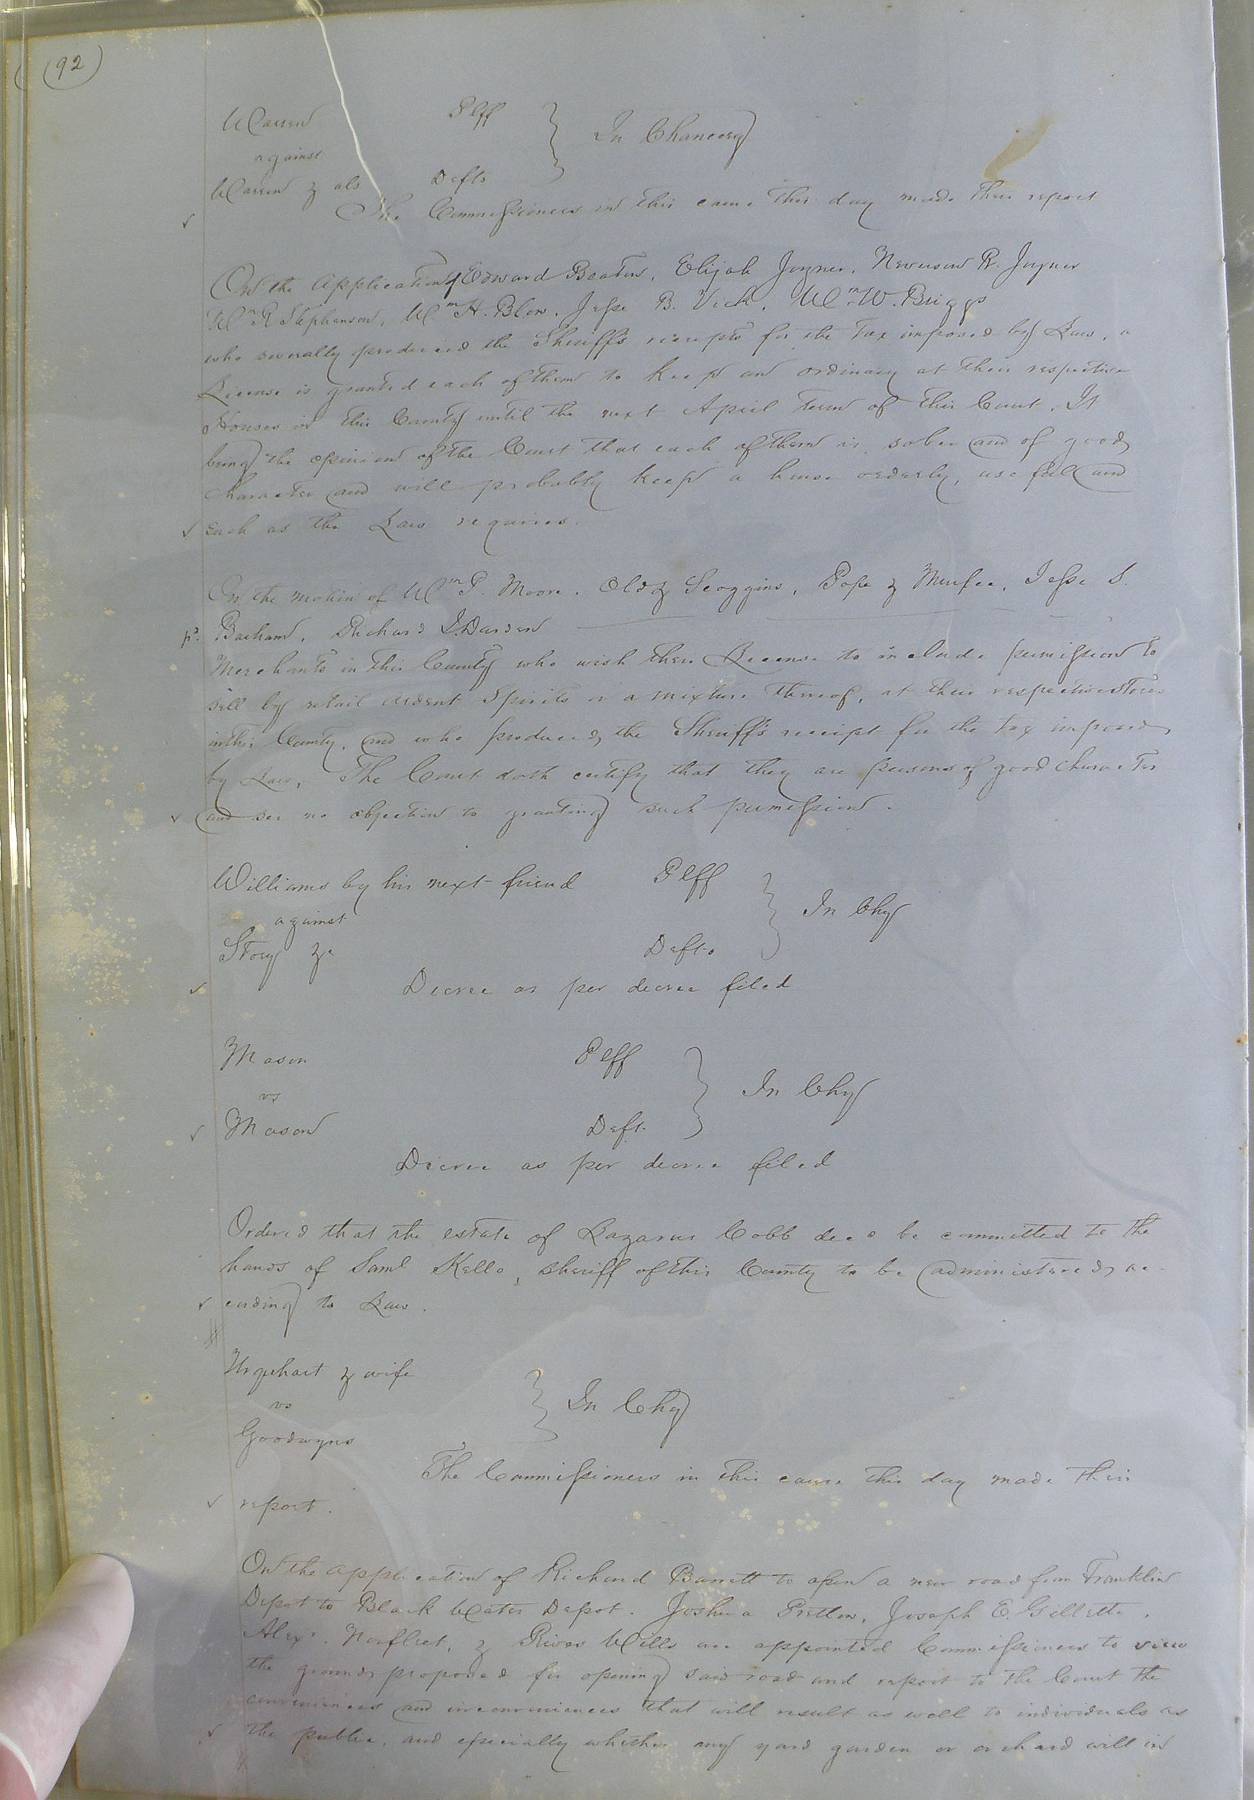 (92)
Warren Plff
against } In Chancery
Warren & als Defts
The Commissioners in this cause this day made their report
On the application of Edward Beaton, Elijah Joyner, Neverson R. Joyner
Wm R Stephenson, Wm H. Blow, Jesse B. Vick, Wm W. Briggs
who severally produced the Sheriff's receipts for the tax imposed by Law, a
License is granted each of them to keep an ordinary at their respective
Houses in this County until the next April Term of this Court. It
being the opinion of the Court that each of them is sober and of good
Character and will probably keep a house orderly, useful and
such as the Law requires.
On the motion of Wm P. Moore, Scoggins, Pope & Jesse S.
Barham, Richard Darden
Merchants in this County who wish their License to include permission to
sell by retail ardent Spirits or a mixture thereof, at their respective Stores
in this County, and who produced the Sheriff's receipt for the tax imposed
by Law, The Court doth certify that they are persons of good character
and see no objection to granting such permission.
Williams by his next friend Plff
against } In Chy
Story &c Defts
Decree as per decree filed
Mason Plff
vs } In Chy
Mason Deft.
Decree as per decree filed
Ordered that the estate of Lazarus Cobb decd be committed to the
hands of Saml Kello, Sheriff of this County to be administered ac-
cording to Law.
Urquhart & wife
vs } In Chy
Goodwyns
The Commissioners in this cause this day made their
report.
On the application of Richard Barrett to open a new road from Franklin
Depot to Black Water Depot. Joshua Pretlow, Joseph E. Gillette,
Alexr. Norfleet, & Wills are appointed Commissioners to view
the grounds proposed for opening said road and report to the Court the
conveniences and inconveniences that will result as well to individuals as
the public, and especially whether any yard garden or orchard will in